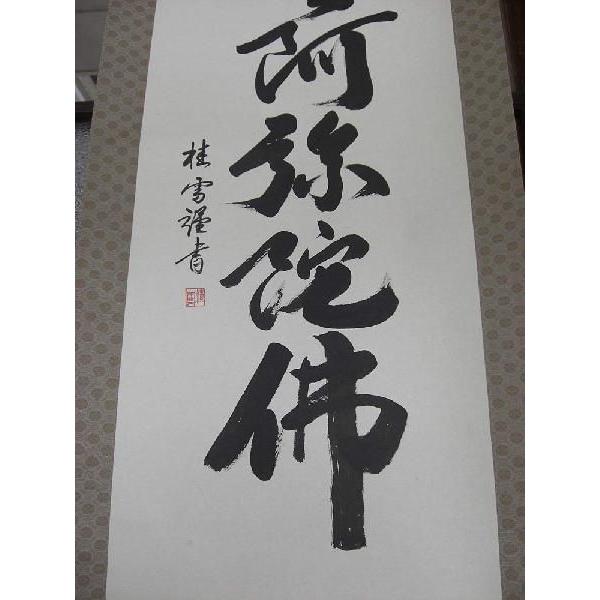 阿弥陀佛
桂雪謹書